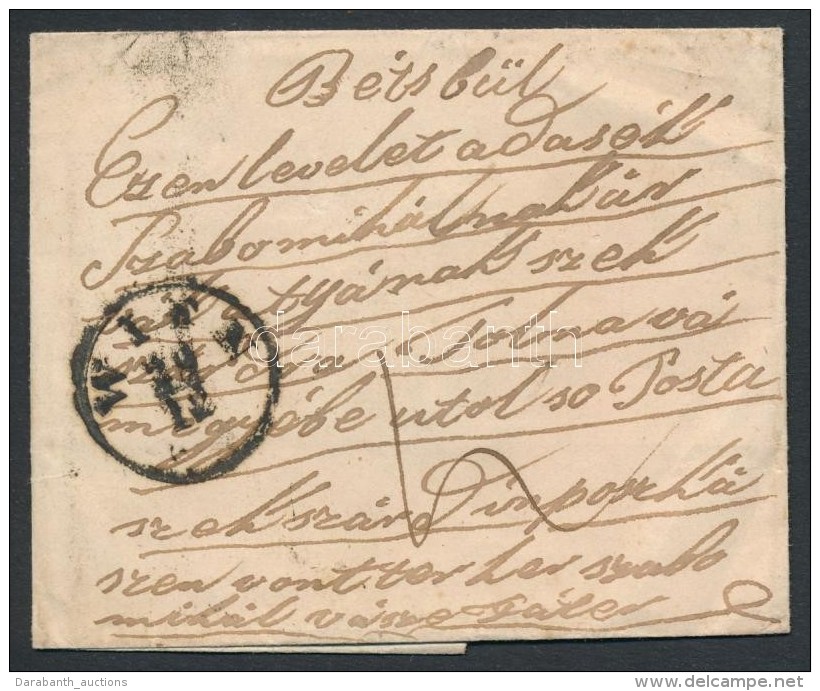 Bétsbül
Ezen levelet adasék
Szabo mihálnak ár
atyának szek
szárdra Tolna vá
megyébe utol so Posta
szekszárd inposzká
szen vont ter her szabo
mihál vászo Páter
WIEN
darabanth
Darabanth_auctions
www.delcampe.net